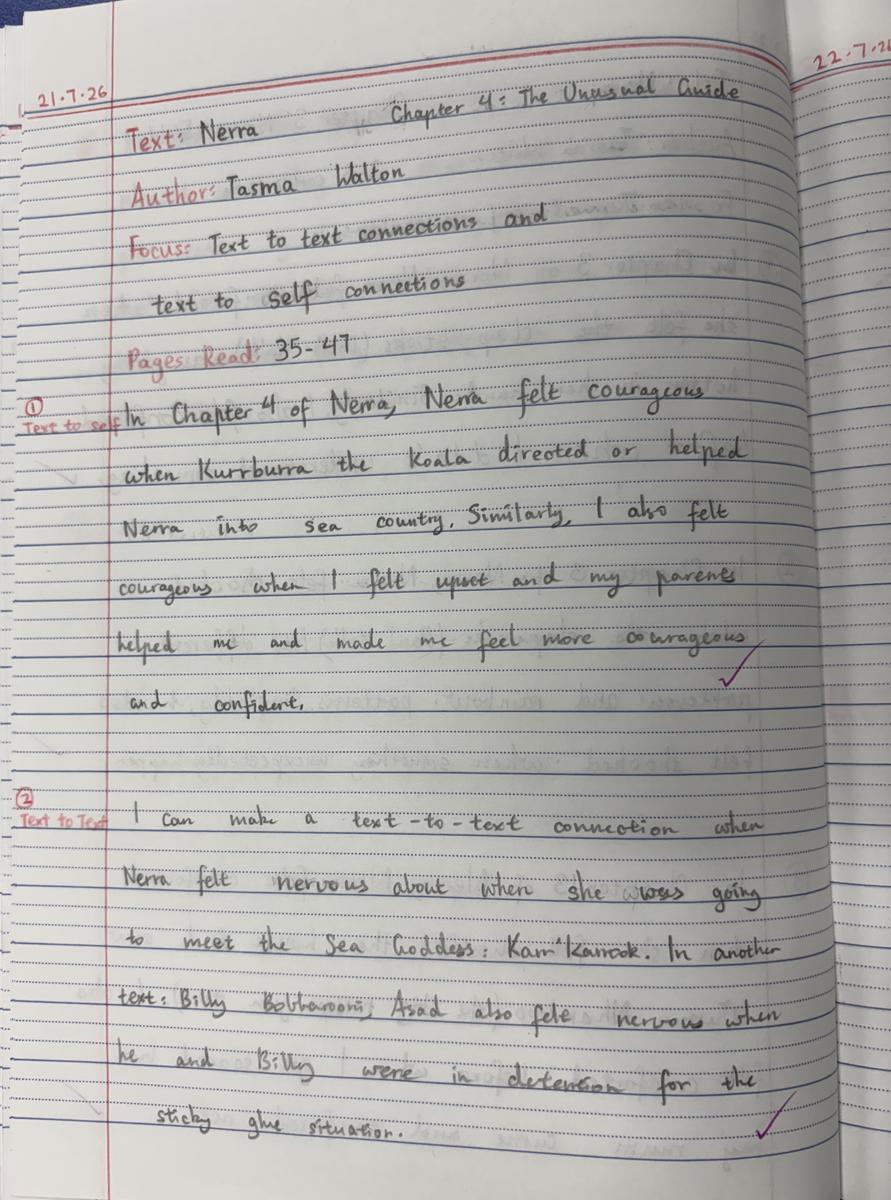 21.7.26
22.7.26
Text: Nerra Chapter 4: The Unusual Guide
Author: Tasma Walton
Focus: Text to text connections and
text to self connections
Pages Read: 35-47
①
Text to self In Chapter 4 of Nerra, Nerra felt courageous
when Kurrburra the Koala directed or helped
Nerra into sea country. Similarly, I also felt
courageous when I felt upset and my parents
helped me and made me feel more courageous
and confident.
②
Text to Text I can make a text-to-text connection when
Nerra felt nervous about when she was going
to meet the Sea Goddess: Kam'Karrook. In another
text: Billy Bobbarooni, Asad also felt nervous when
he and Billy were in detention for the
sticky glue situation.